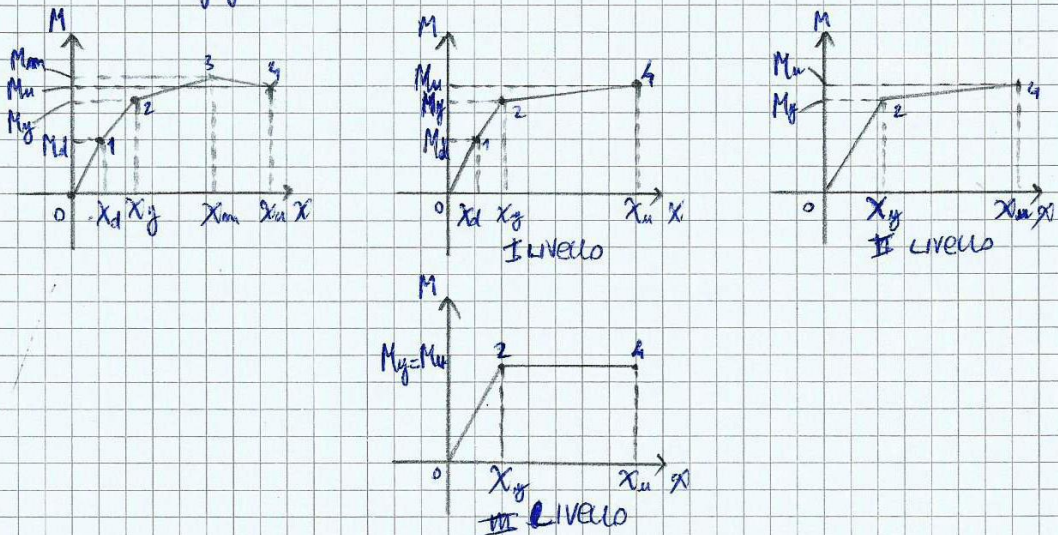 M
Mm
Mu
My
Md
1
2
3
4
0
Xd Xy Xm Xu X
M
Mu
My
Md
1
2
4
0
Xd Xy Xu X
I LIVELLO
M
Mu
My
2
4
0
Xy Xu X
II LIVELLO
M
My=Mu
2
4
0
Xy Xu X
III LIVELLO